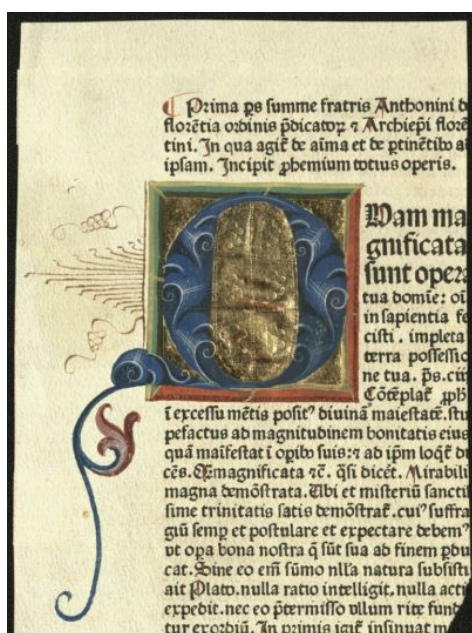 Prima ps summe fratris Anthonini d
florētia ordinis p̄dicatoꝝ ⁊ Archiepi florē
tini. In qua agit̄ de aīma et de ꝑtinētibꝰ a
ipsam. Incipit ꝓhemium totius operis.
QVam ma
gnificata
sunt oper
tua domīe: oī
in sapientia fe
cisti. impleta
terra possessio
ne tua. p̄s. ciī
Cōtēplat᷑ ꝓph
ī excessu mētis positꝰ diuinā maiestatē. stu
pefactus ad magnitudinem bonitatis eius
quā maīfestat i oꝑibꝰ suis: ⁊ ad ip̄m loqt᷑ di
cēs. Q̄magnificata ⁊c̄. q̄si dicēt. Mirabili
magna demōstrata. Ubi et misteriū sancti
sime trinitatis satis demōstrat᷑. cuiꝰ suffra
giū semꝑ et postulare et expectare debemꝰ
vt oꝑa bona nostra q̄ sūt sua ad finem ꝑdu
cat. Sine eo em̄ sūmo nll'a natura subsisti
ait Plato. nulla ratio intelligit, nulla acti
expedit. nec eo p̄termisso vllum rite fund
tur exordiū. In primis igit᷑ insinuat m